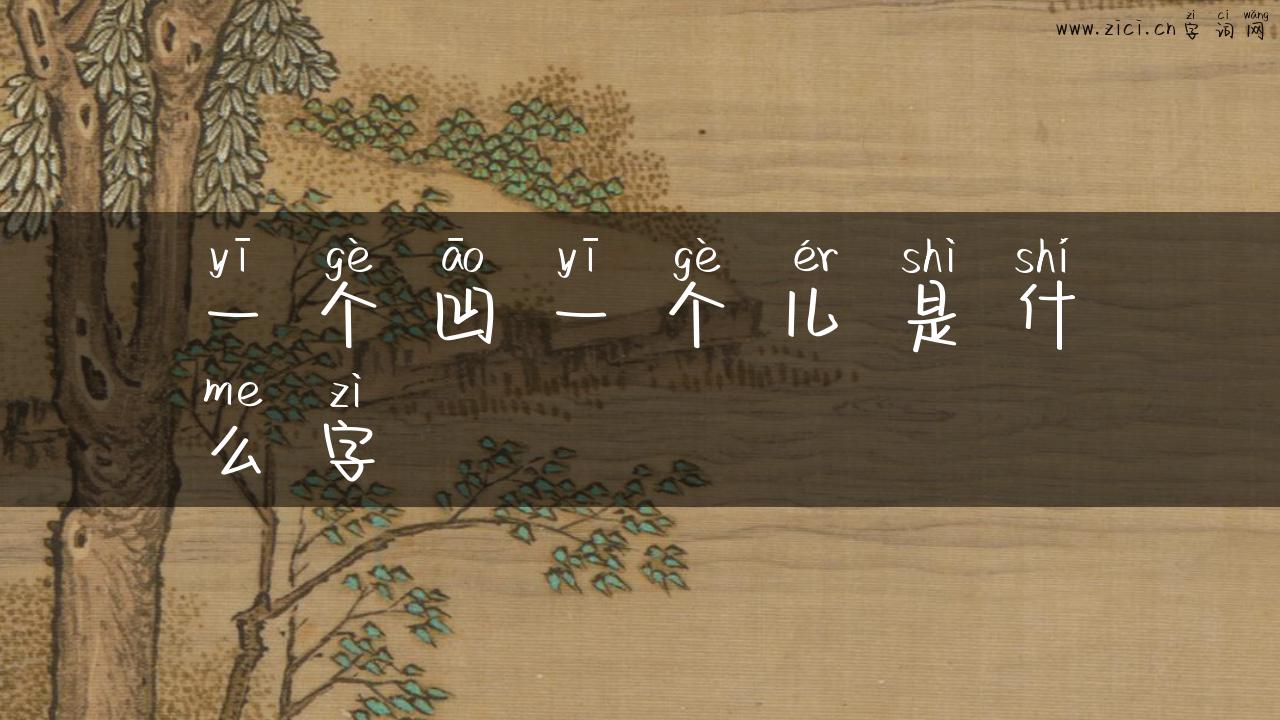 zì cí wǎng
www.zici.cn 字词网
yī gè āo yī gè ér shì shí
一个凹一个儿是什
me zì
么字